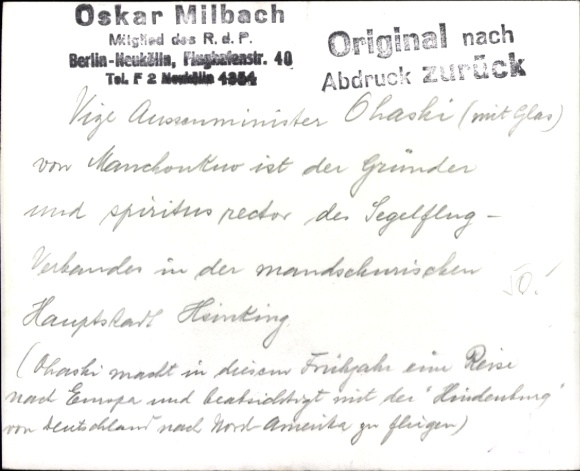 Oskar Milbach
Mitglied des R. d. P.
Berlin-Neukölln, Flughafenstr. 40
Tel. F 2 Neukölln 4354
Original nach
Abdruck zurück
Vize Aussenminister Ohashi (mit Glas)
von Manchoukuo ist der Gründer
und spiritus rector des Segelflug-
Verbandes in der mandschurischen
Hauptstadt Hsinking
(Ohashi macht in diesem Frühjahr eine Reise
nach Europa und beabsichtigt mit der "Hindenburg"
von Deutschland nach Nord-Amerika zu fliegen)